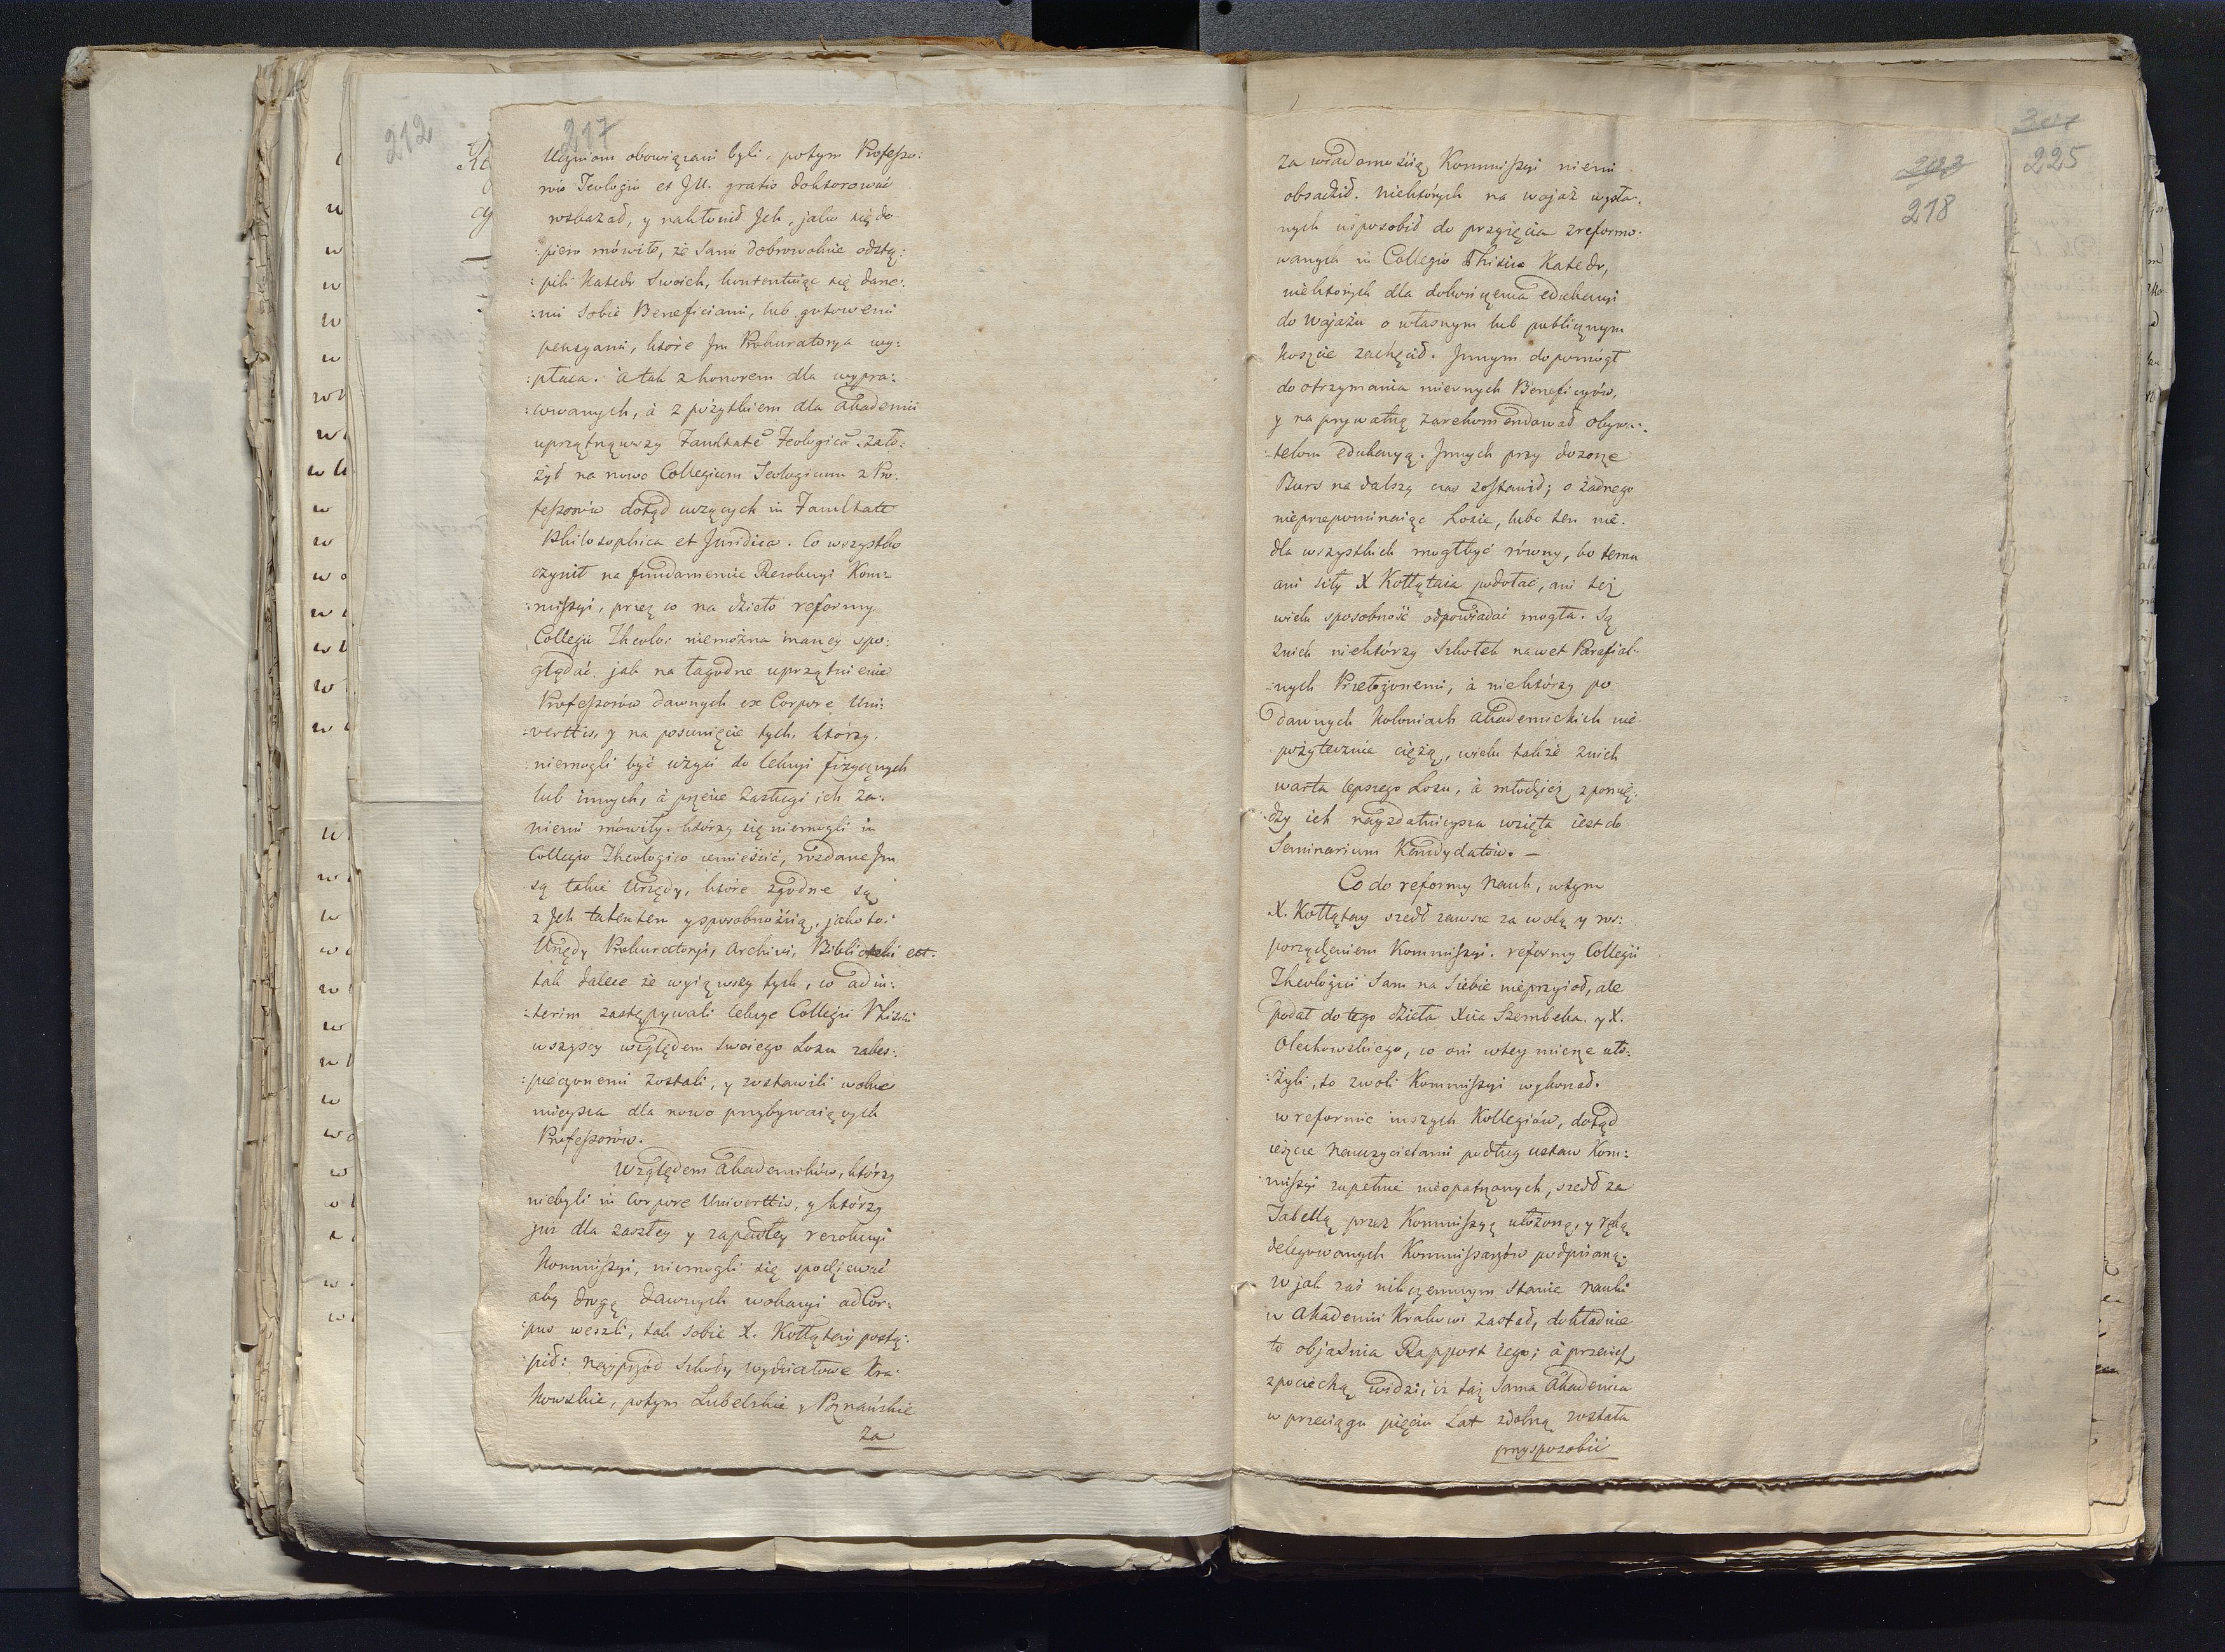 212
217
Uczniom obowiązani byli, potym Professo:
rów Teologii et JU. gratis doktorować
wskazał, y nakłonił Jch, jako się do
:piero mówiło, że Sami dobrowolnie odstą:
:pili Katedr Swoich, kontentuiąc się dane:
:mi sobie Beneficiami, lub gotowemi
pensyami, które Jm Prokuratorya wy:
:płaca. a tak z honorem dla wypra:
:cowanych, à z pożytkiem dla akademii
uprzątnąwszy Facultatē Teologicā. zało:
żył na nowo Collegium Teologicum z Pro:
fessorów dotąd uczących in Facultate
Philosophica et Juridica. Co wszystko
czynił na fundamencie Rezolucyi Kom:
:missyi, przez co na dzieło reformy
Collegii Theolo: niemożna inaczey spo:
glądać. jak na łagodne uprzątnienie
Professorów dawnych ex Corpore Uni:
:versttis, y na posunięcie tych, którzy.
:niemogli być użyci do lekcyi fizycznych
lub innych, à przecie zasługi ich za:
niemi mówiły. którzy się niemogli in
Collegio Theologico umieścić, rozdane Jm
są takie Urzędy, które zgodne są
z Jch talentem y sposobnością, jako to:
Urzędy Prokuratoryi, Archivi, Biblioteki ect.
tak dalece że wyiąwszy tych, co ad in:
:terim zastępywali lekcye Collegii Phisici
wszyscy względem swoiego Losu zabes:
:pieczonemi zostali, y zostawili wolne
mieysca dla nowo przybywaiących
Professorów.
Względem akademików, którzy
niebyli in Corpore Universttis, y którzy
już dla zaszłey y zapadłey rezolucyi
Kommissyi, niemogli się spodziewać
aby drogą dawnych wokacyi ad Cor:
:pus weszli, tak sobie X. Kołłątay postą:
:pił: nayprzód Szkoły wydziałowe Kra:
kowskie, potym Lubelskie y Poznańskie
za
225
218
za wiadomością Kommissyi niemi
obsadził. niektórych na wojaż wysła:
nych usposobił do przyięcia zreformo:
wanych in Collegio Phisico Katedr,
niektórych dla dokończenia edukacyi
do wojażu o własnym lub publicznym
koszcie zachęcił. Jnnym dopomógł
do otrzymania miernych Beneficyów,
y na prywatną zarekomendował obywa:
:telom edukacyą. Jnnych przy dozorze
Burs na dalszy czas zostawił; o żadnego
nieprzepominaiąc Losie, lubo ten nie:
dla wszystkich mógł być równy, bo temu
ani siły X Kołłątaia podołać, ani też
wielu sposobność odpowiadać mogła. Są
z nich niektórzy Szkołek nawet Parafial:
:nych Przełożonemi, à niektórzy po
dawnych koloniach akademickich nie
pożytecznie ciężą, wielu także z nich
warta lepszego Losu, à młodzież z pomię:
:dzy ich nayzdatnieysza wzięta iest do
Seminarium Kandydatów. —
Co do reformy nauk, w tym
X. Kołłątay szedł zawsze za wolą y roz:
porządzeniem Kommissyi. reformy Collegii
Theologici Sam na Siebie nieprzyiął, ale
podał do tego dzieła Xcia Szembeka. y X.
Olechowskiego, co oni w tey mierze uło:
:żyli, to z woli Kommissyi wykonał.
w reformie inszych Kollegiów, dotąd
ieszcze nauczycielami podług ustaw Kom:
missyi zupełnie nieopatrzonych, szedł za
Tabellą przez Kommissyą ułożoną, y ręką
delegowanych Kommissarzów podpisaną.
W jak zaś nikczemnym stanie nauki
w Akademii Krakows: zastał, dokładnie
to objaśnia Rapport iego; à przecież
z pociechą widzi, iż taż Sama Akademia
w przeciągu pięciu Lat zdolną została
przysposobić